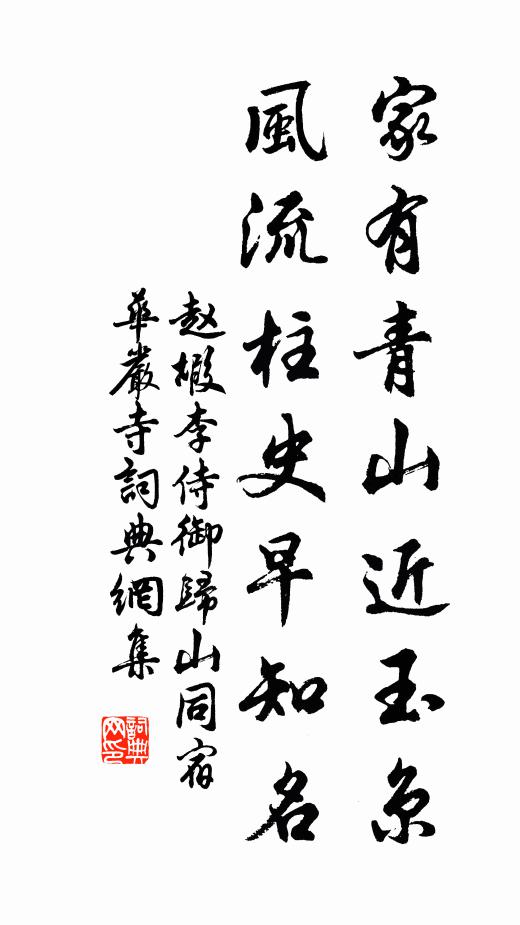 家有青山近玉京
風流柱史早知名
赵嘏李侍御歸山同宿
華嚴寺詞典網集
詞典網印